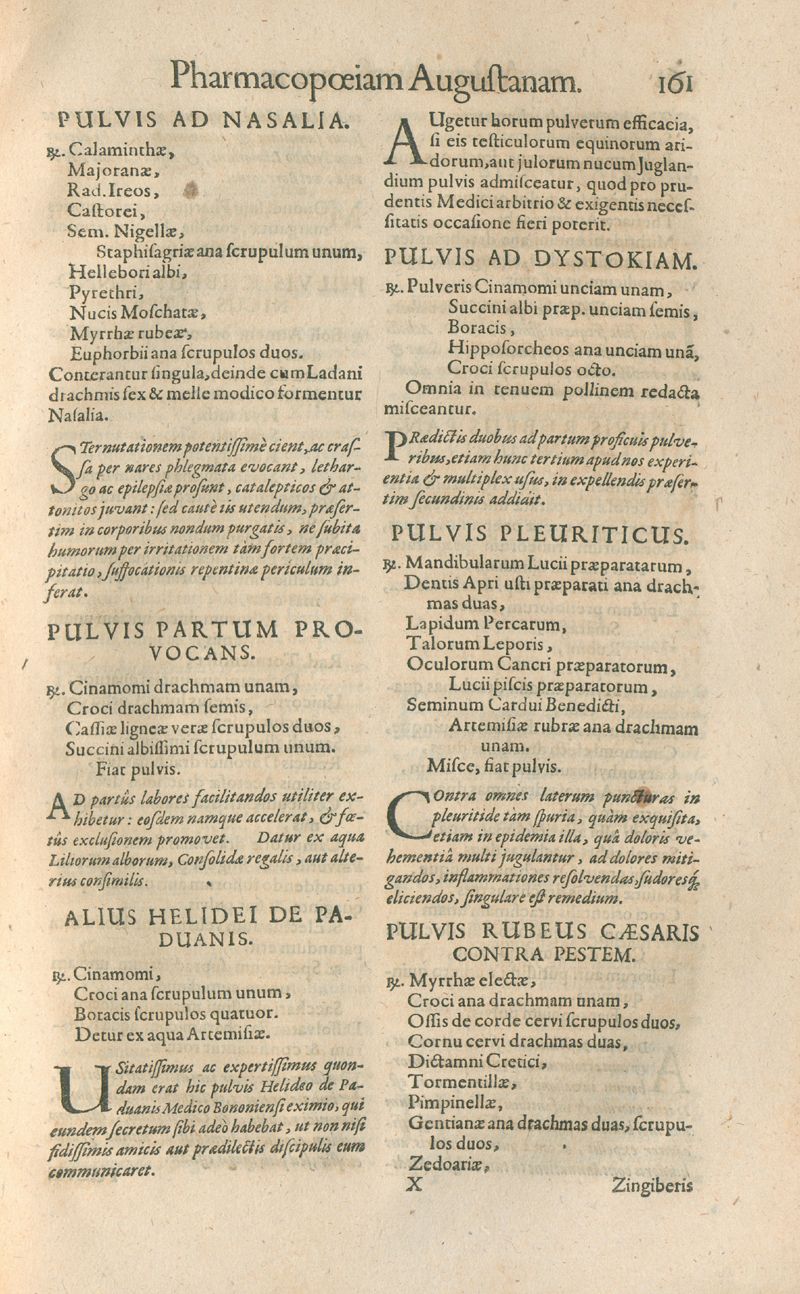 Pharmacopœiam Auguſtanam. 161
PULVIS AD NASALIA.
℞. Calaminthæ,
Majoranæ,
Rad. Ireos,
Caſtorei,
Sem. Nigellæ,
Staphiſagriæ ana ſcrupulum unum,
Hellebori albi,
Pyrethri,
Nucis Moſchatæ,
Myrrhæ rubeæ,
Euphorbii ana ſcrupulos duos.
Conterantur ſingula, deinde cum Ladani
drachmis ſex & melle modico formentur
Naſalia.
STernutationem potentiſſimè cient, ac craſ-
ſa per nares phlegmata evocant, lethar-
go ac epilepſiæ proſunt, catalepticos & at-
tonitos juvant: ſed cautè iis utendum, præſer-
tim in corporibus nondum purgatis, ne ſubita
humorum per irritationem tàm fortem præci-
pitatio, ſuffocationis repentinæ periculum in-
ferat.
PULVIS PARTUM PRO-
VOCANS.
℞. Cinamomi drachmam unam,
Croci drachmam ſemis,
Caſſiæ ligneæ veræ ſcrupulos duos,
Succini albiſſimi ſcrupulum unum.
Fiat pulvis.
AD partûs labores facilitandos utiliter ex-
hibetur: eoſdem namque accelerat, & fœ-
tûs excluſionem promovet. Datur ex aqua
Liliorum alborum, Conſolidæ regalis, aut alte-
rius conſimilis.
ALIUS HELIDEI DE PA-
DUANIS.
℞. Cinamomi,
Croci ana ſcrupulum unum,
Boracis ſcrupulos quatuor.
Detur ex aqua Artemiſiæ.
USitatiſſimus ac expertiſſimus quon-
dam erat hic pulvis Helideo de Pa-
duanis Medico Bononienſi eximio, qui
eundem ſecretum ſibi adeò habebat, ut non niſi
fidiſſimis amicis aut prædilectis diſcipulis eum
communicaret.
AUgetur horum pulverum efficacia,
ſi eis teſticulorum equinorum ari-
dorum, aut julorum nucum Juglan-
dium pulvis admiſceatur, quod pro pru-
dentis Medici arbitrio & exigentis neceſ-
ſitatis occaſione fieri poterit.
PULVIS AD DYSTOKIAM.
℞. Pulveris Cinamomi unciam unam,
Succini albi præp. unciam ſemis,
Boracis,
Hippoſorcheos ana unciam unã,
Croci ſcrupulos octo.
Omnia in tenuem pollinem redacta
miſceantur.
PRædictis duobus ad partum proficuis pulve-
ribus, etiam hunc tertium apud nos experi-
entia & multiplex uſus, in expellendis præſer-
tim ſecundinis addidit.
PULVIS PLEURITICUS.
℞. Mandibularum Lucii præparatarum,
Dentis Apri uſti præparati ana drach-
mas duas,
Lapidum Percarum,
Talorum Leporis,
Oculorum Cancri præparatorum,
Lucii piſcis præparatorum,
Seminum Cardui Benedicti,
Artemiſiæ rubræ ana drachmam
unam.
Miſce, fiat pulvis.
COntra omnes laterum puncturas in
pleuritide tàm ſpuria, quàm exquiſita,
etiam in epidemia illa, quâ doloris ve-
hementiâ multi jugulantur, ad dolores miti-
gandos, inflammationes reſolvendas, ſudoresq́;
eliciendos, ſingulare eſt remedium.
PULVIS RUBEUS CÆSARIS
CONTRA PESTEM.
℞. Myrrhæ electæ,
Croci ana drachmam unam,
Oſſis de corde cervi ſcrupulos duos,
Cornu cervi drachmas duas,
Dictamni Cretici,
Tormentillæ,
Pimpinellæ,
Gentianæ ana drachmas duas, ſcrupu-
los duos,
Zedoariæ,
X Zingiberis